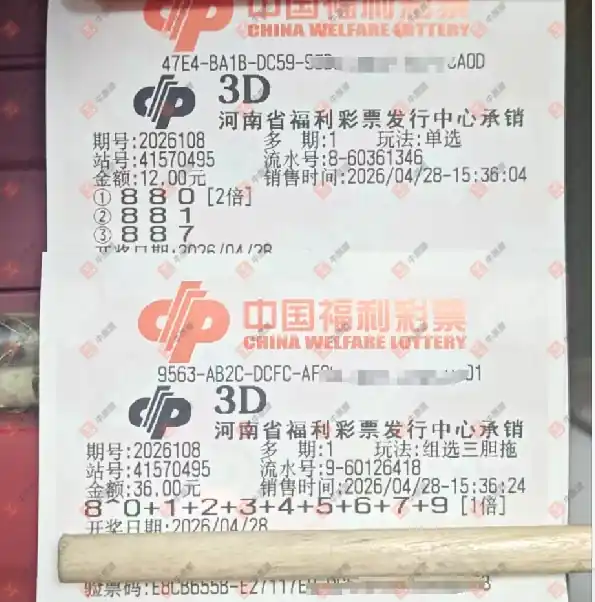 中国福利彩票
CHINA WELFARE LOTTERY
47E4-BA1B-DC59-
A0D
3D
河南省福利彩票发行中心承销
期号:2026108 多 期:1 玩法:单选
站号:41570495 流水号:8-60361346
金额:12.00元 销售时间:2026/04/28-15:36:04
①880[2倍]
②881
③887
开奖日期:2026/04/28
中国福利彩票
CHINA WELFARE LOTTERY
9563-AB2C-DCFC-AF
01
3D
河南省福利彩票发行中心承销
期号:2026108 多 期:1 玩法:组选三胆拖
站号:41570495 流水号:9-60126418
金额:36.00元 销售时间:2026/04/28-15:36:24
8^0+1+2+3+4+5+6+7+9[1倍]
开奖日期:2026/04/28
验票码:E8CB655B-E27117E